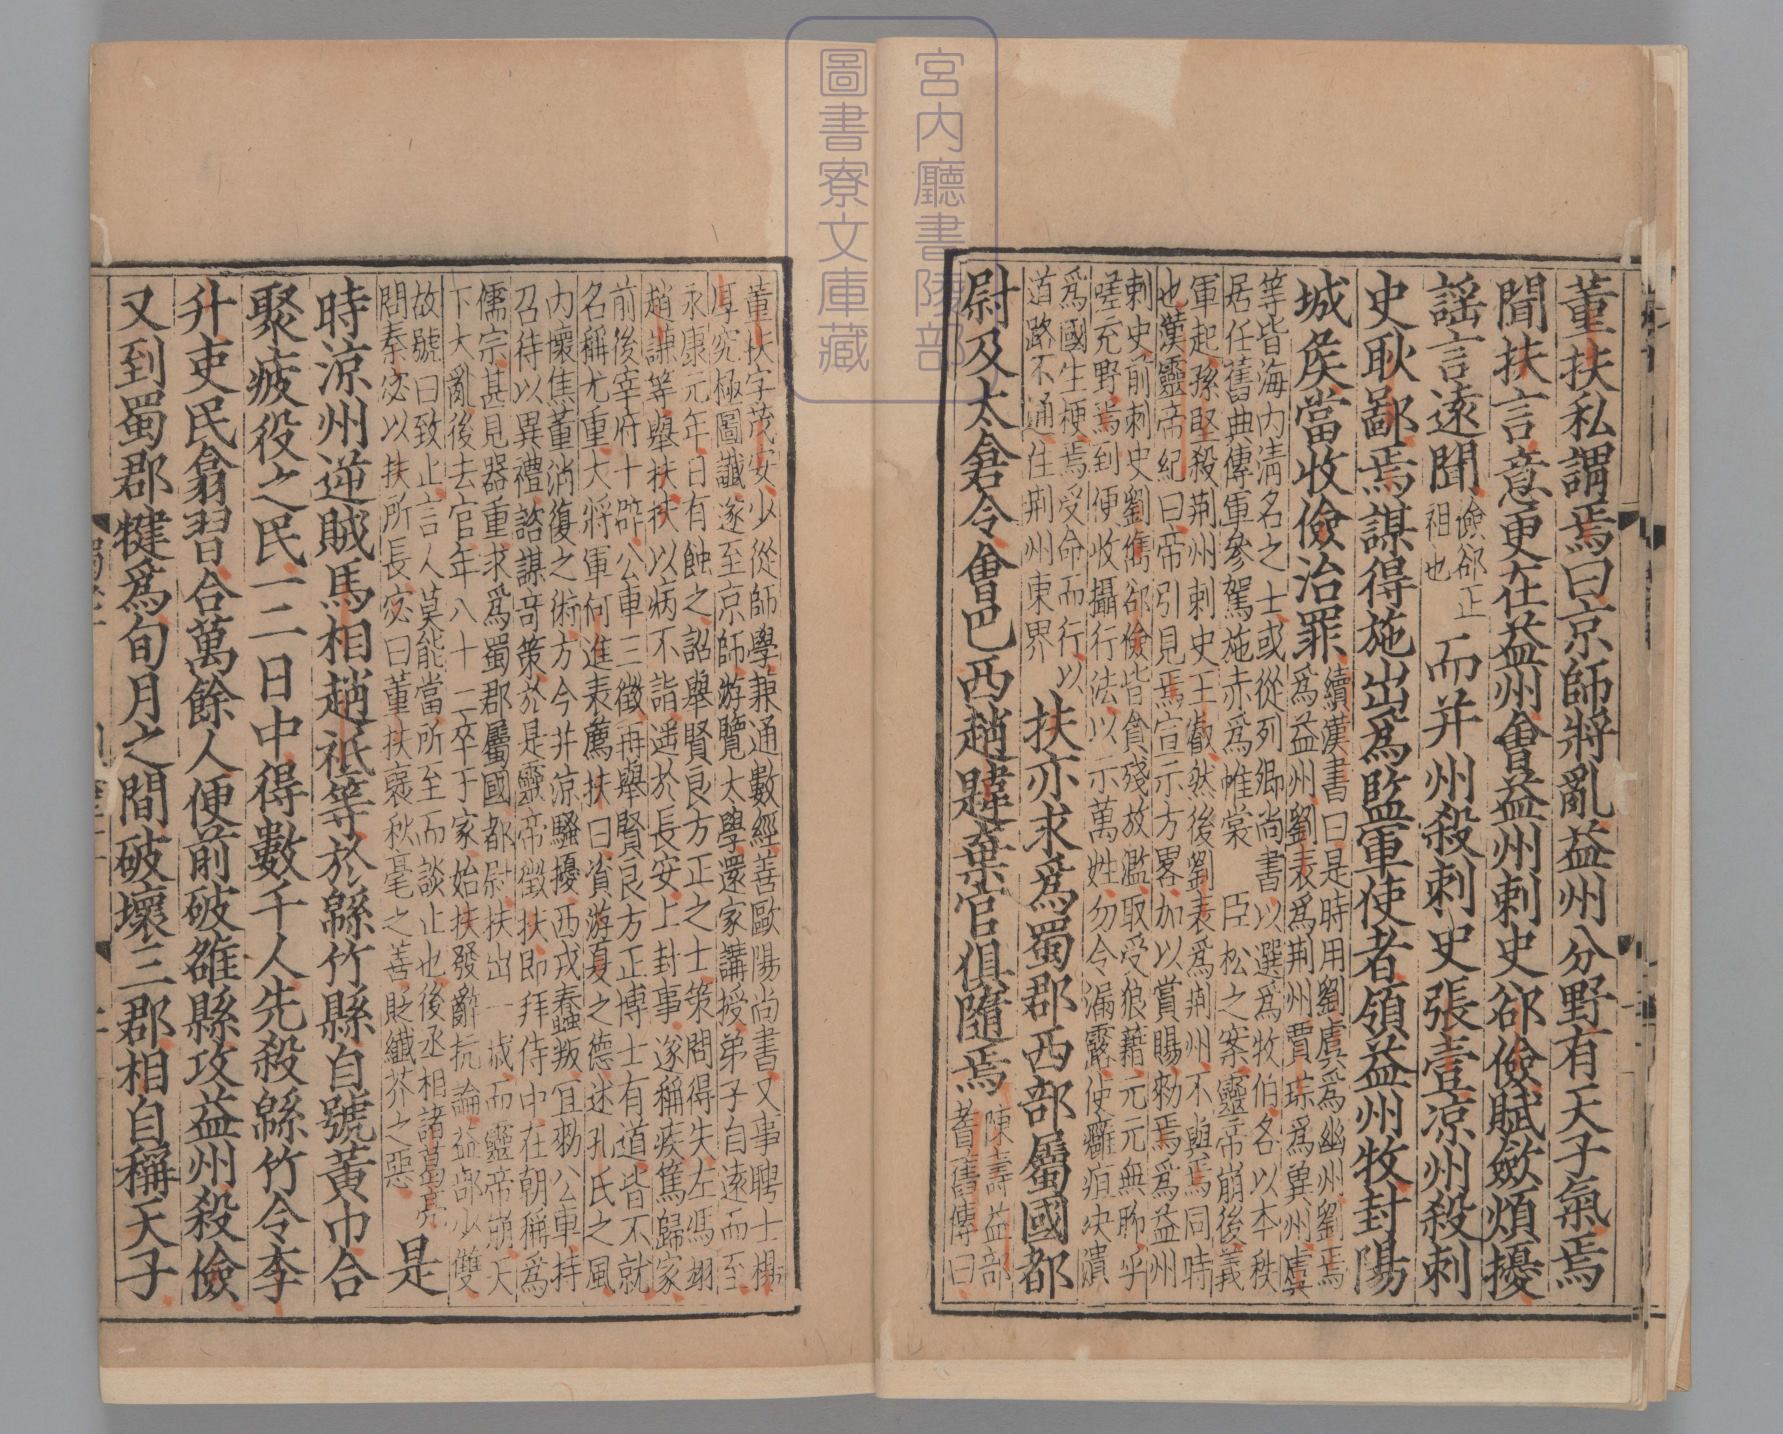 董扶私謂焉曰京師將亂益州分野有天子氣焉
聞扶言意更在益州會益州刺史郤儉賦斂煩擾
謡言遠聞儉郤正祖也而并州殺刺史張壹涼州殺刺
史耿鄙焉謀得施出爲監軍使者領益州牧封陽
城矦當收儉治罪續漢書曰是時用劉虞爲幽州劉焉
爲益州劉表爲荆州賈琮爲兾州虞
等皆海内清名之士或從列卿尚書以選爲牧伯各以本秩
居任舊典傳軍參駕施赤爲帷裳 臣松之案靈帝崩後義
軍起孫堅殺荆州刺史王叡然後劉表爲荆州不與焉同時
也漢靈帝紀曰帝引見焉宣示方畧加以賞賜勑焉爲益州
刺史前刺史劉儁郤儉皆貪殘放濫取受狼藉元元無聊呼
嗟充野焉到便收攝行法以示萬姓勿令漏露使癰疽决潰
爲國生梗焉受命而行以
道路不通住荆州東界
扶亦求爲蜀郡西部屬國都
尉及太倉令會巴西趙韙棄官俱隨焉陳壽益部
耆舊傳曰
董扶字茂安少從師學兼通數經善歐陽尚書又事聘士楊
厚究極圖讖遂至京師游覽太學還家講授弟子自遠而至
永康元年日有蝕之詔舉賢良方正之士策問得失左馮翊
趙謙等舉扶扶以病不詣遥於長安上封事遂稱疾篤歸家
前後宰府十辟公車三徵再舉賢良方正博士有道皆不就
名稱尤重大將軍何進表薦扶曰資游夏之德述孔氏之風
内懷焦董消復之術方今并涼騷擾西戎蠢叛宜勑公車持
召待以異禮諮謀竒策於是靈帝徵扶即拜侍中在朝稱爲
儒宗甚見器重求爲蜀郡屬國都尉扶出一歳而靈帝崩天
下大亂後去官年八十二卒于家始扶發辭抗論益部少雙
故號曰致止言人莫能當所至而談止也後丞相諸葛亮
問秦宓以扶所長宓曰董扶襃秋毫之善貶纎芥之惡
是
時涼州逆賊馬相趙祇等於緜竹縣自號黄巾合
聚疲役之民一二日中得數千人先殺緜竹令李
升吏民翕習合萬餘人便前破雒縣攻益州殺儉
又到蜀郡犍爲旬月之間破壞三郡相自稱天子
宮内廳書陵部
圖書寮文庫藏